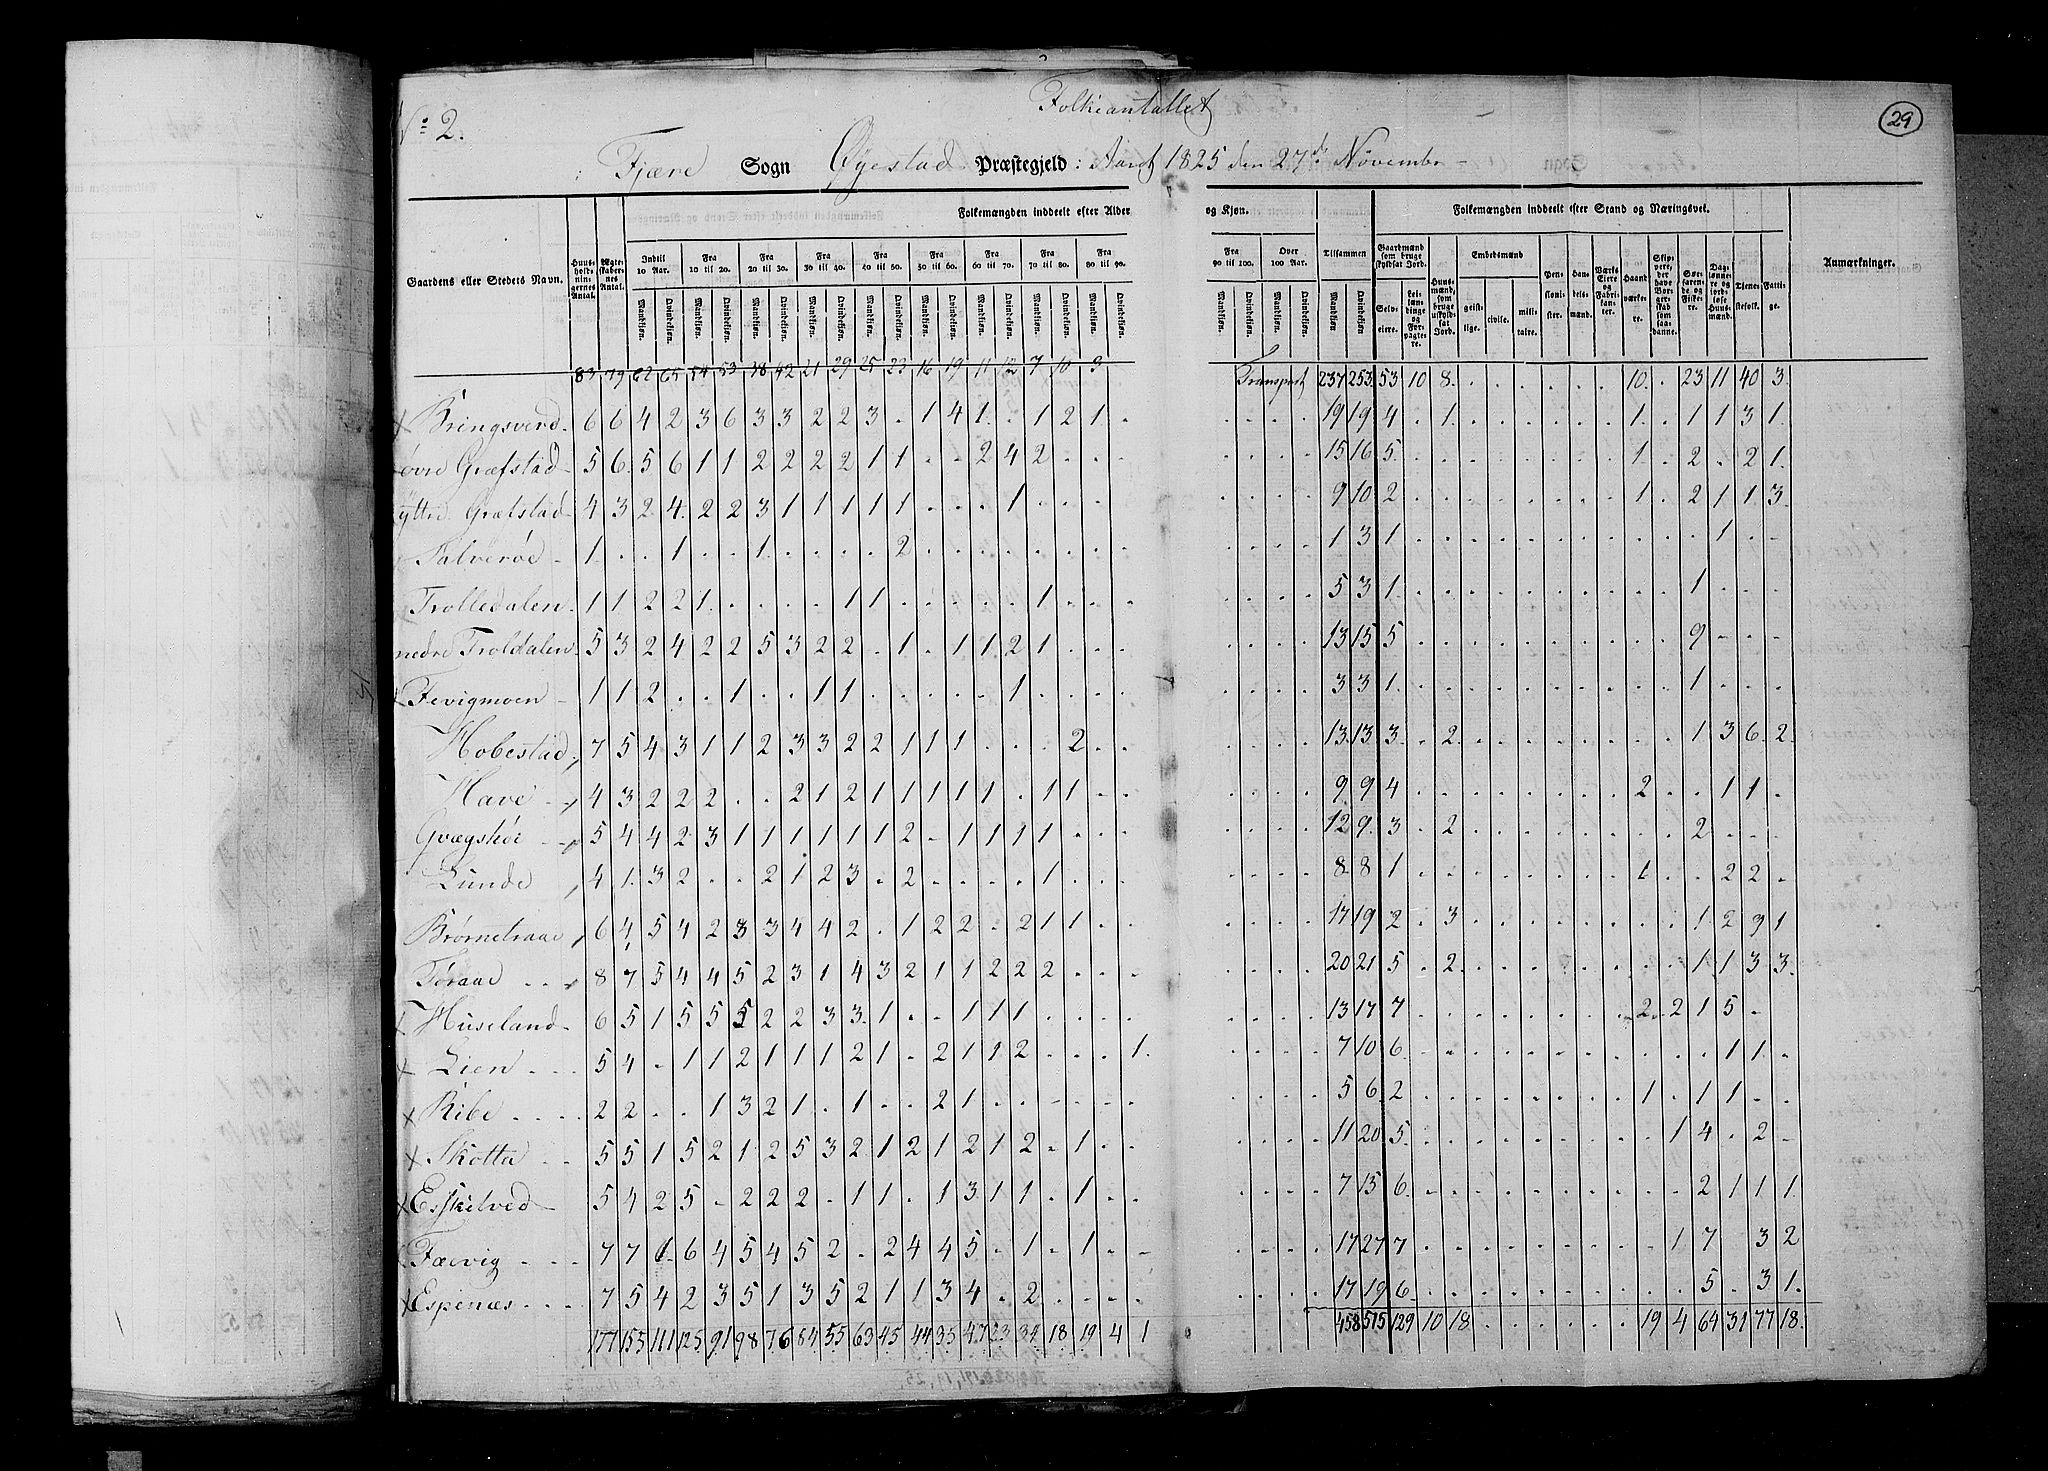 29
No 2.
Folkeantallet
Fjære Sogn Øyestad Præstegjeld: Aaret 1825 den 27de Novembr
Folkemængden inddeelt efter Alder og Kjøn. Folkemængden inddeelt efter Stand og Næringsvei.
Gaardens eller Stedets Navn. Huusholdningernes Antal. Ægteskabernes Antal. Indtil 10 Aar. Fra 10 til 20. Fra 20 til 30. Fra 30 til 40. Fra 40 til 50. Fra 50 til 60. Fra 60 til 70. Fra 70 til 80. Fra 80 til 90. Fra 90 til 100. Over 100 Aar. Tilsammen Gaardmænd som bruge skyldsat Jord. Huusmænd, som bruge uskyldsat Jord. Embedsmænd Pensionister. Handelsmænd. Værks Eiere og Fabrikanter. Haandværkere. Skippere, der have Borgerskab som saadanne. Søefarende og Fiskere. Daglønnere og jordløse Huusmænd. Tjenestefolk. Fattige. Anmærkninger.
Mandkjøn. Qvindekjøn. Mandkjøn. Qvindekjøn. Mandkjøn. Qvindekjøn. Mandkjøn. Qvindekjøn. Mandkjøn. Qvindekjøn. Mandkjøn. Qvindekjøn. Mandkjøn. Qvindekjøn. Mandkjøn. Qvindekjøn. Mandkjøn. Qvindekjøn. Mandkjøn. Qvindekjøn. Mandkjøn. Qvindekjøn. Mandkjøn. Qvindekjøn. Selveiere. Leilændinge og Forpagtere. geistlige. civile. militaire.
83 79 62 65 54 53 38 42 21 29 25 23 16 19 11 12 7 10 3 Transport 237 253 53 10 8 . . . . . . 10 . 23 11 40 3
x Bringsverd 6 6 4 2 3 6 3 3 2 2 3 . 1 4 1 . 1 2 1 . . . . . 19 19 4 . 1 . . . . . . 1 . 1 1 3 1
øvre Græfstad 5 6 5 6 1 1 2 2 2 2 1 1 . . 2 4 2 . . . . . . . 15 16 5 . . . . . . . . 1 . 2 . 2 1
yttre Græfstad 4 3 2 4 2 2 3 1 1 1 1 1 . . . 1 . . . . . . . . 9 10 2 . . . . . . . . 1 . 2 1 1 3
Salverøe 1 . . 1 . . 1 . . . . 2 . . . . . . . . . . . . 1 3 1 . . . . . . . . . . . 1 . .
x Trolledalen 1 1 2 2 1 . . . . 1 1 . . . . . 1 . . . . . . . 5 3 1 . . . . . . . . . . 1 . . .
nedre Troldalen 5 3 2 4 2 2 5 3 2 2 . 1 . 1 1 2 1 . . . . . . . 13 15 5 . . . . . . . . . . 9 . . .
x Fevigmoen 1 1 2 . . 1 . . 1 1 . . . . . 1 . . . . . . . . 3 3 1 . . . . . . . . . . 1 . . .
Hobestad 7 5 4 3 1 1 2 3 3 2 2 1 1 1 . . . 2 . . . . . . 13 13 3 . 2 . . . . . . . . 1 3 6 2
Have 4 3 2 2 2 . . 2 1 2 1 1 1 1 1 . 1 1 . . . . . . 9 9 4 . . . . . . . . 2 . . 1 1 .
Grægstøe 5 4 4 2 3 1 1 1 1 1 1 2 . 1 1 1 1 . . . . . . . 12 9 3 . 2 . . . . . . . . 2 . . .
Lunde 4 1 3 2 . . 2 1 2 3 . 2 . . . . 1 . . . . . . . 8 8 1 . . . . . . . . 1 . . 2 2 .
Brømetraae 6 4 5 4 2 3 3 4 4 2 . 1 2 2 . 2 1 1 . . . . . . 17 19 2 . 3 . . . . . . . . 1 2 9 1
Toraae 8 7 5 4 4 5 2 3 1 4 3 2 1 1 2 2 2 . . . . . . . 20 21 5 . 2 . . . . . . . . 1 1 3 3
Huseland 6 5 1 5 5 5 2 2 3 3 1 . . 1 1 1 . . . . . . . . 13 17 7 . . . . . . . . 2 2 1 5 .
x Lien 5 4 . 1 1 2 1 1 1 2 1 . 2 1 1 2 . . . 1 . . . . 7 10 6 . . . . . . . . . . . 1 1 .
x Ribe 2 2 . . 1 3 2 1 . 1 . . 2 1 . . . . . . . . . . 5 6 2 . . . . . . . . 1 . 1 1 . .
x Skotta 5 5 1 5 2 1 2 5 3 2 1 2 1 2 1 2 . 1 . . . . . . 11 20 5 . . . . . . . . . 1 4 . 2 .
x Esskilved 5 4 2 5 . 2 2 2 . 1 1 . 1 3 1 1 . 1 . . . . . . 7 15 6 . . . . . . . . . . 2 1 1 1
Fæevig 7 7 1 6 4 5 4 5 2 . 2 4 4 5 . 1 . 1 . . . . . . 17 27 7 . . . . . . . . . 1 7 . 3 2
x Espenæs 7 5 4 2 3 5 1 3 5 2 1 1 3 4 . 2 . . . . . . . . 17 19 6 . . . . . . . . . . 5 . 3 1
177 155 111 125 91 98 76 84 55 63 45 44 35 47 23 34 18 19 4 1 458 515 129 10 18 . . . . . . 19 4 64 31 77 18